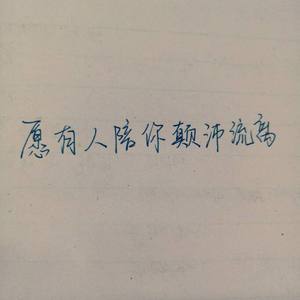 愿有人陪你颠沛流离